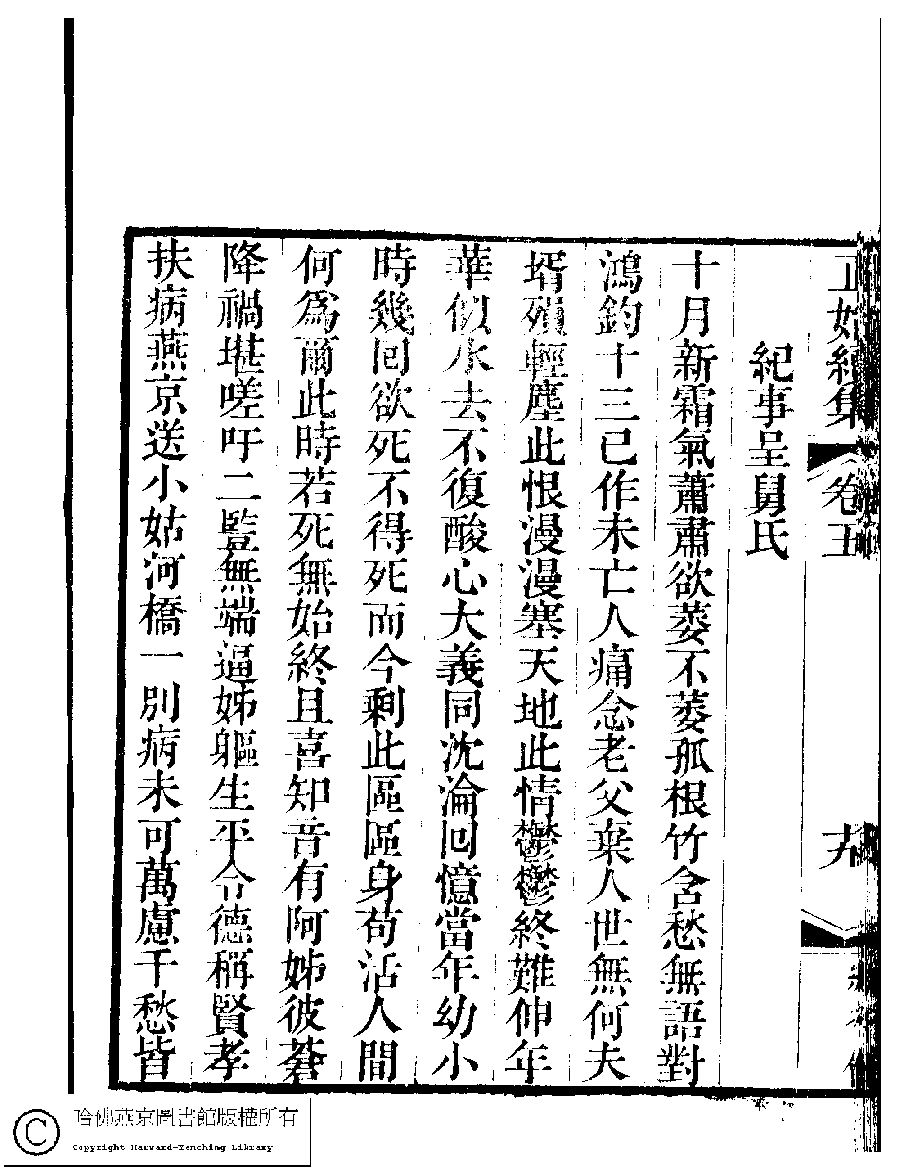 正始續集
卷五
紀事呈舅氏
十月新霜氣蕭肅欲萎不萎孤根竹含愁無語對
鴻鈞十三已作未亡人痛念老父棄人世無何夫
壻殞輕塵此恨漫漫塞天地此情鬱鬱終難伸年
華似水去不復酸心大義同沈淪回憶當年幼小
時幾回欲死不得死而今剩此區區身苟活人間
何為爾此時若死無始終且喜知音有阿姊彼蒼
降禍堪嗟吁二豎無端逼姊軀生平令德稱賢孝
扶病燕京送小姑河橋一別病未可萬慮千愁皆
哈佛燕京圖書館版權所有
Copyright Harvard-Yenching Library